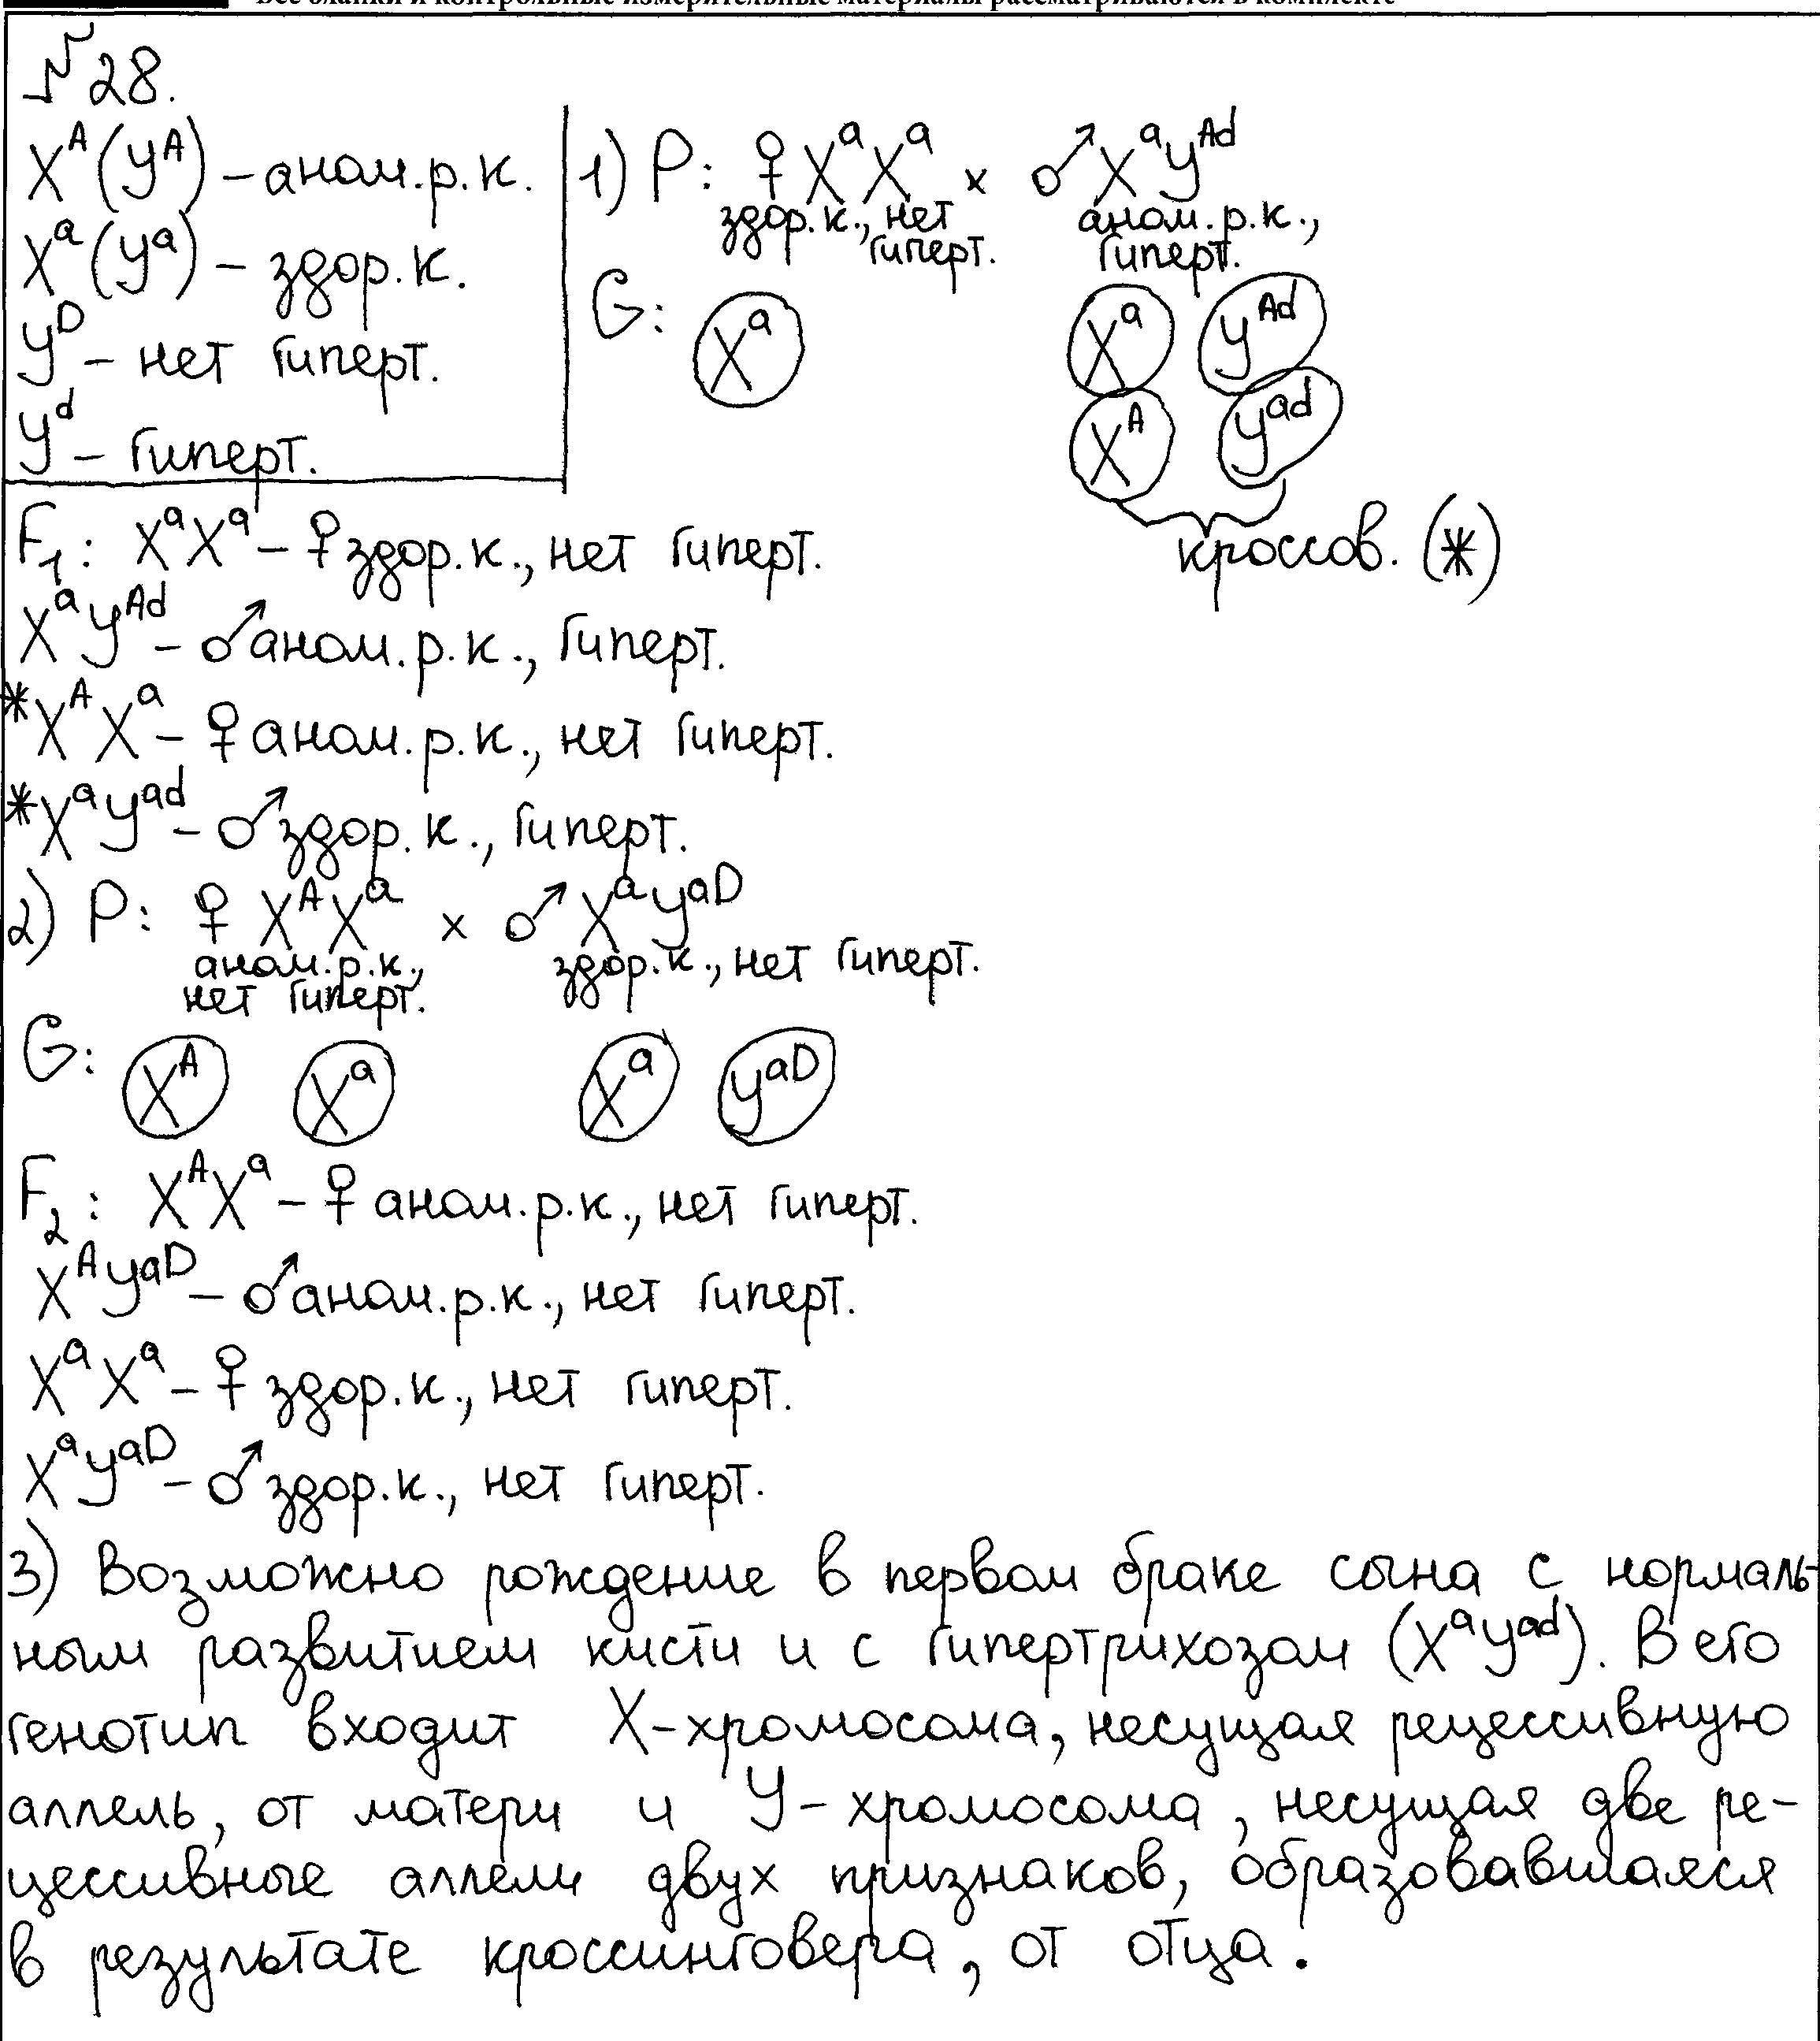 Все бланки и контрольные измерительные материалы рассматриваются в комплекте
№28.
X^A (Y^A) – аном.р.к.
X^a (Y^a) – здор.к.
Y^D – нет гиперт.
Y^d – гиперт.
1) P: ♀ X^a X^a × ♂ X^a Y^Ad
здор.к., нет гиперт. аном.р.к., гиперт.
G: X^a X^a Y^Ad
X^A Y^ad
кроссов. (*)
F1: X^a X^a – ♀ здор.к., нет гиперт.
X^a Y^Ad – ♂ аном.р.к., гиперт.
*X^A X^a – ♀ аном.р.к., нет гиперт.
*X^a Y^ad – ♂ здор.к., гиперт.
2) P: ♀ X^A X^a × ♂ X^a Y^aD
аном.р.к., нет гиперт. здор.к., нет гиперт.
G: X^A X^a X^a Y^aD
F2: X^A X^a – ♀ аном.р.к., нет гиперт.
X^A Y^aD – ♂ аном.р.к., нет гиперт.
X^a X^a – ♀ здор.к., нет гиперт.
X^a Y^aD – ♂ здор.к., нет гиперт.
3) Возможно рождение в первом браке сына с нормаль-
ным развитием кисти и с гипертрихозом (X^a Y^ad). В его
генотип входит X-хромосома, несущая рецессивную
аллель, от матери и Y-хромосома, несущая две ре-
цессивные аллели двух признаков, образовавшаяся
в результате кроссинговера, от отца.